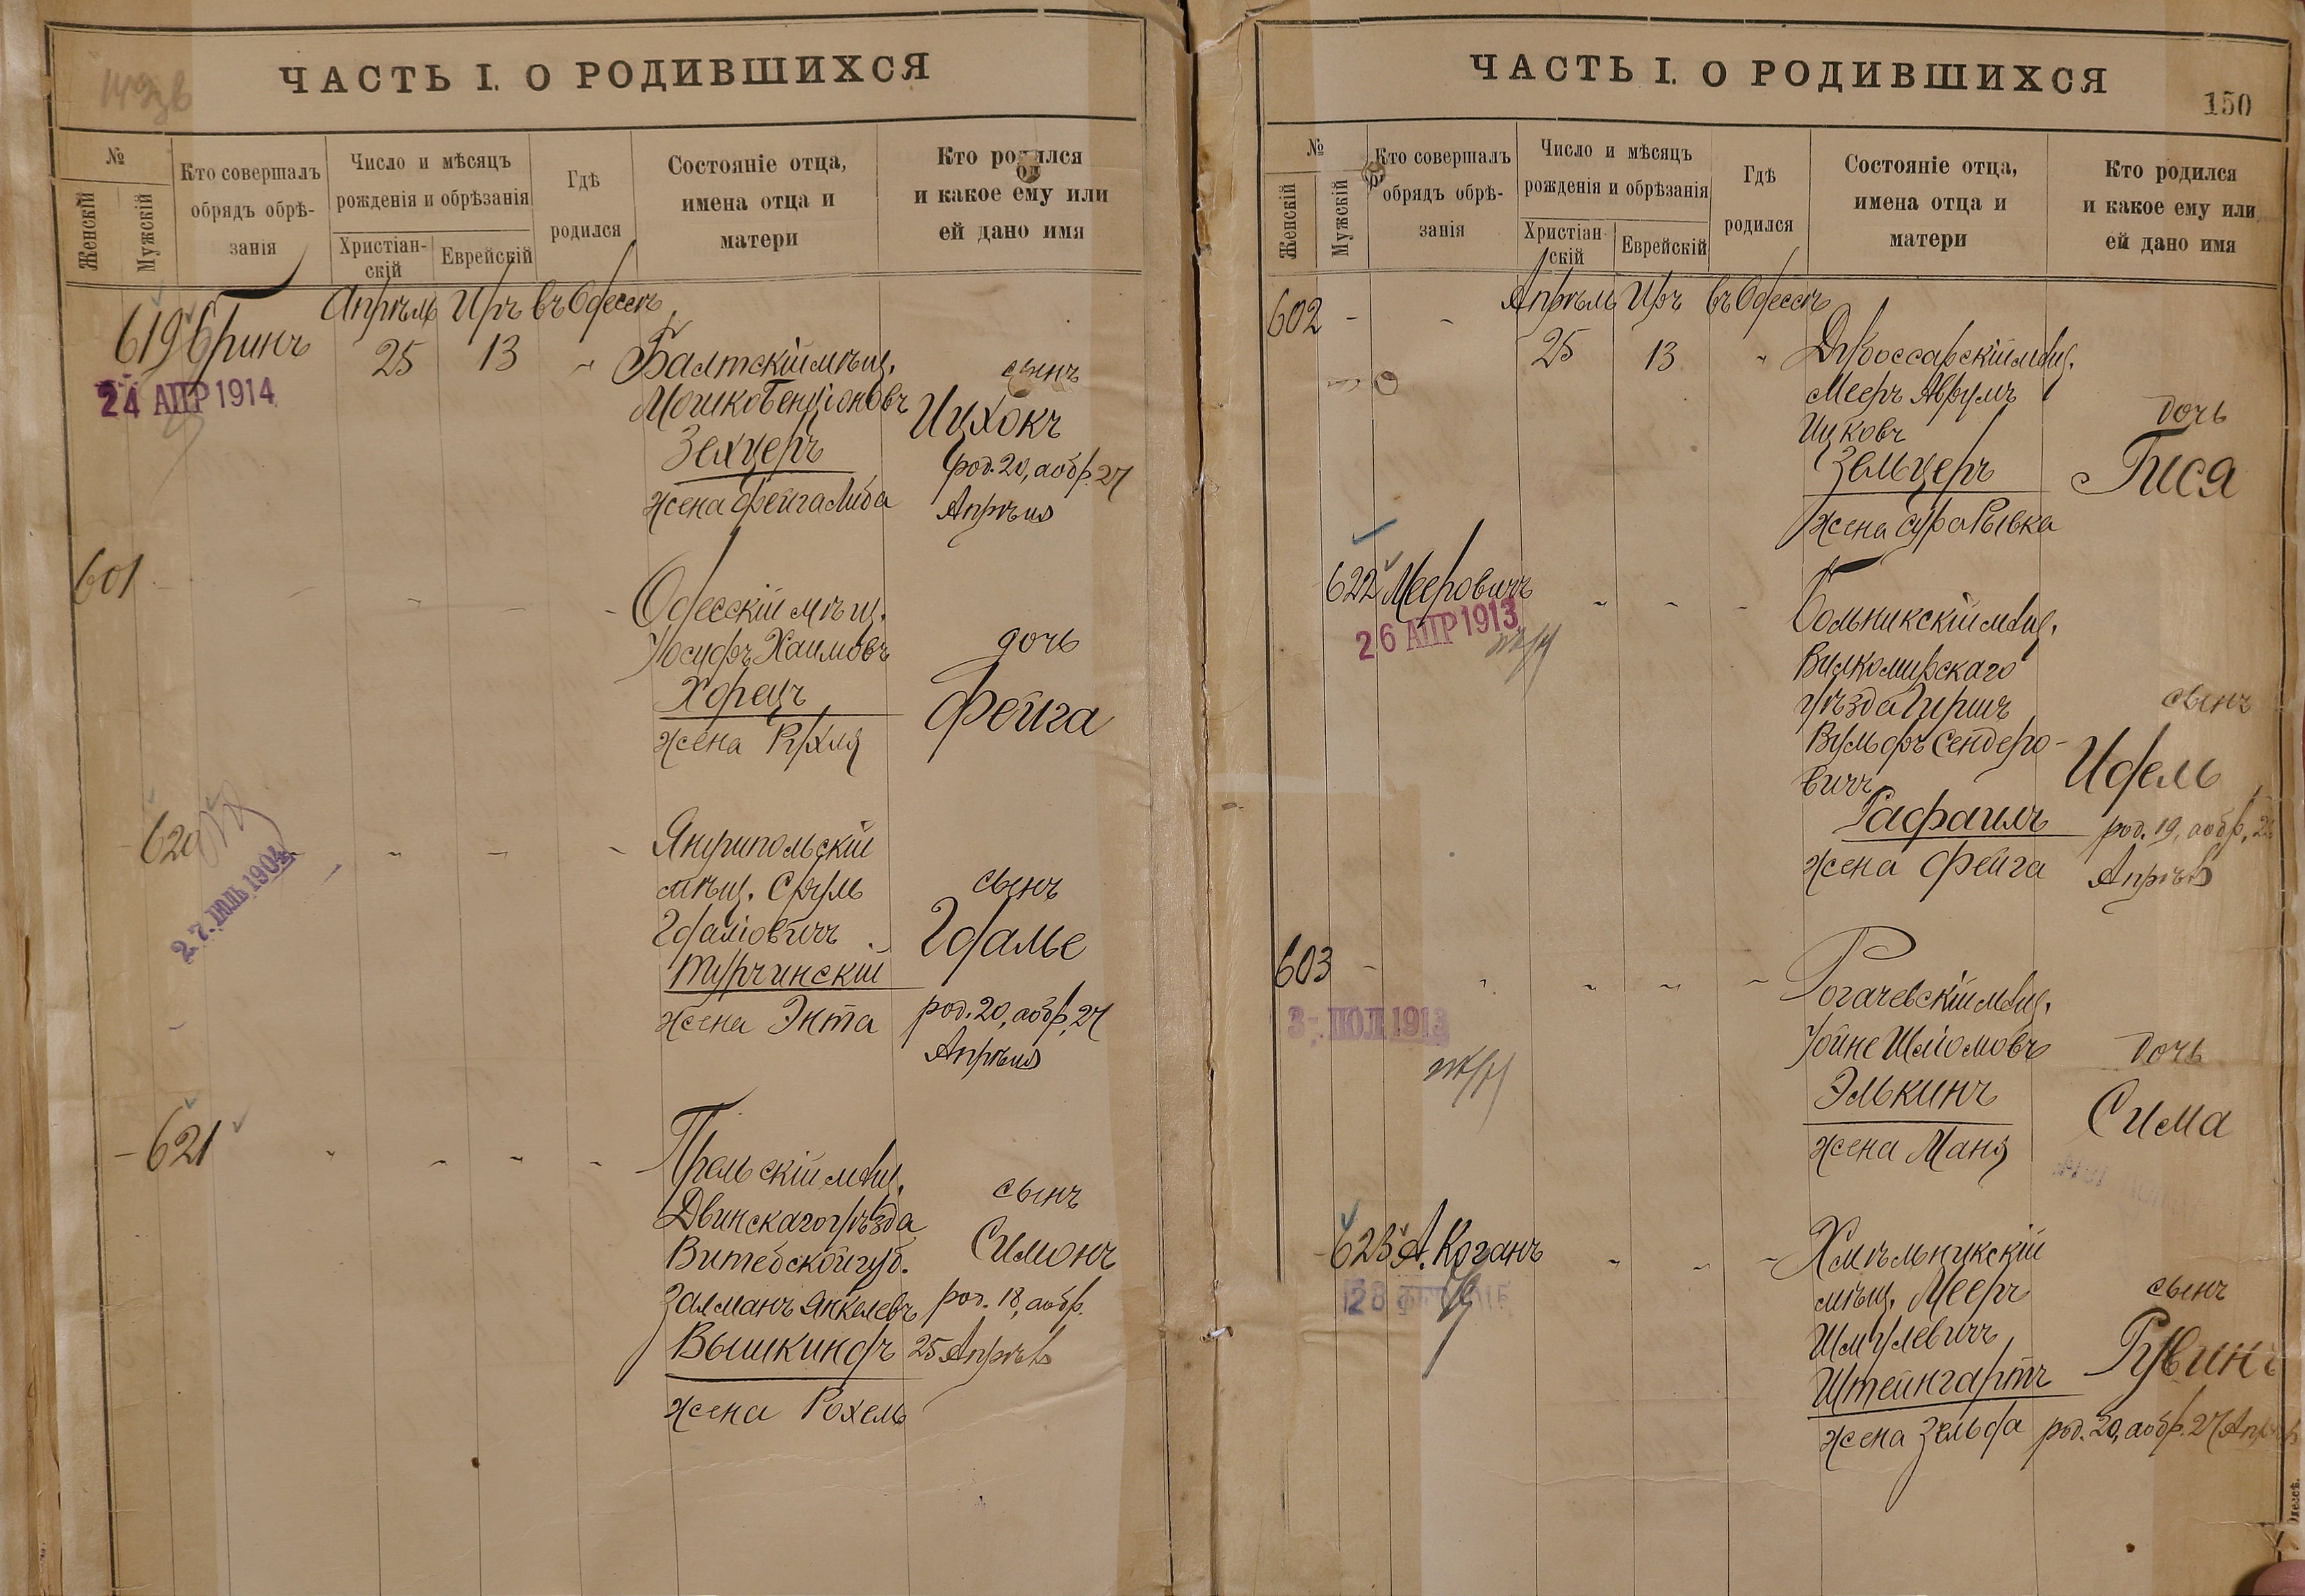 ЧАСТЬ I. О РОДИВШИХСЯ
№
Женскій
Мужскій
Кто совершалъ
обрядъ обрѣ-
занія
Число и мѣсяцъ
рожденія и обрѣзанія
Христіан-
скій
Еврейскій
Гдѣ
родился
Состояніе отца,
имена отца и
матери
Кто родился
и какое ему или
ей дано имя
Апрѣль Иръ въ Одессѣ
619 Бринъ 25 13
24 АПР 1914
Балтскій мѣщ.
Мошко Бенціоновъ
Зехцеръ
жена Фейга Либа
сынъ
Ицхокъ
род. 20, а обр. 27
Апрѣля
601
Одесскій мѣщ.
Іосифъ Хаимовъ
Хорецъ
жена Рухля
дочь
Фейга
620
27. ІЮЛЬ 1904
Янушпольскій
мѣщ. Сруль
Гдаліовичъ
Турчинскій
жена Энта
сынъ
Гдалье
род. 20, а обр. 27
Апрѣля
621
Прельскій мѣщ.
Двинскаго уѣзда
Витебской губ.
Залманъ Янкелевъ
Вышкиндъ
жена Рохель
сынъ
Симонъ
род. 18, а обр.
25 Апрѣля
ЧАСТЬ I. О РОДИВШИХСЯ
150
№
Женскій
Мужскій
Кто совершалъ
обрядъ обрѣ-
занія
Число и мѣсяцъ
рожденія и обрѣзанія
Христіан-
скій
Еврейскій
Гдѣ
родился
Состояніе отца,
имена отца и
матери
Кто родился
и какое ему или
ей дано имя
Апрѣль Иръ въ Одессѣ
602 25 13
мѣщ.
Мееръ Аврумъ
Ицковъ
Зельцеръ
жена Сура Рывка
дочь
Гися
622 Мееровичъ
26 АПР 1913
мѣщ.
Вилкомирскаго
уѣзда Гиршъ
Вульфъ Сендеро-
вичъ
Рафаилъ
жена Фейга
сынъ
Идель
род. 19, а обр. 26
Апрѣля
603
3- ІЮЛ 1913
Рогачевскій мѣщ.
Іойне Шліомовъ
Элькинъ
жена Маня
дочь
Сима
623 А. Коганъ
Хмѣльникскій
мѣщ. Мееръ
Шмулевичъ
Штейнгартъ
жена Зельда
сынъ
Рувинъ
род. 20, а обр. 27 Апрѣля